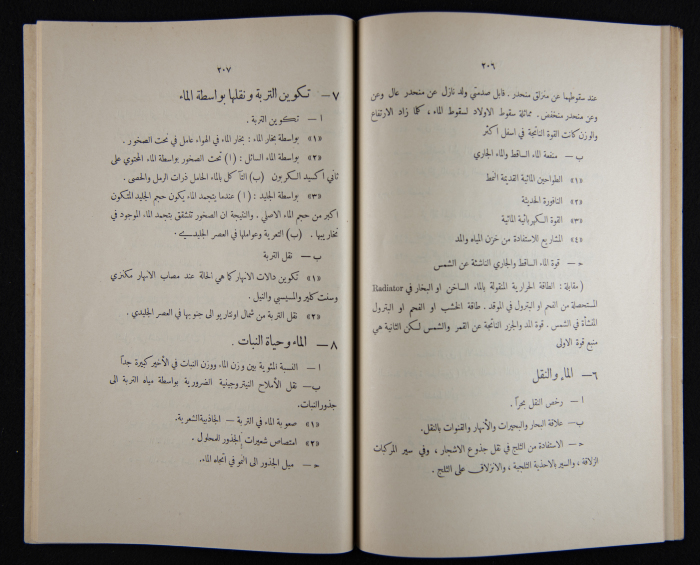 ٣٠٦
عند سقوطهما عن منزلق منحدر . قابل صدمتي ولد نازل عن منحدر عال وعن
وعن منحدر منخفض . مماثلة سقوط الاولاد لسقوط الماء ، كلما زاد الارتفاع
والوزن كانت القوة الناتجة في اسفل اكثر
ب — منفعة الماء الساقط والماء الجاري
«١» الطواحين المائية القديمة النمط
«٢» النافورة الحديثة
«٣» القوة الكهربائية المائية
«٤» المشاريع للاستفادة من خزن المياه والمد
حـ — قوة الماء الساقط والجاري الناشئة عن الشمس
( مقابلة : الطاقة الحرارية المنقولة بالماء الساخن او البخار في Radiator
المستحصلة من الفحم او البترول في الموقد . طاقة الخشب او الفحم او البترول
المنشأة في الشمس . قوة المد والجزر الناتجة عن القمر والشمس لكن الثانية هي
منبع قوة الاولى
٦ — الماء والنقل
ا — رخص النقل بحراً .
ب — علاقة البحار والبحيرات والأنهار والقنوات بالنقل.
حـ — الاستفادة من الثلج في نقل جذوع الاشجار ، وفي سير المركبات
الزلاقة ، والسير بالاحذية الثلجية ، والانزلاق على الثلج .
٣٠٧
٧ — تكوين التربة ونقلها بواسطة الماء
ا — تكوين التربة .
«١» بواسطة بخار الماء : بخار الماء في الهواء عامل في نحت الصخور .
«٢» بواسطة الماء السائل : (ا) نحت الصخور بواسطة الماء المحتوي على
ثاني أكسيد الكربون (ب) التآكل بالماء الحامل ذرات الرمل والحصى .
«٣» بواسطة الجليد : (ا) عندما يتجمد الماء يكون حجم الجليد المتكون
اكبر من حجم الماء الاصلي . والنتيجة ان الصخور تتشقق بتجمد الماء الموجود في
نخاريبها . (ب) التعرية وعواملها في العصر الجليدي .
ب — نقل التربة
«١» تكوين دالات الانهار كما هي الحالة عند مصاب الانهار مكنزي
وسنت كلير والمسيسبي والنيل .
«٢» نقل التربة من شمال اونتاريو الى جنوبها في العصر الجليدي .
٨ — الماء وحياة النبات .
ا — النسبة المئوية بين وزن الماء ووزن النبات في الأخير كبيرة جداً
ب — نقل الأملاح النيتروجينية الضرورية بواسطة مياه التربة الى
جذور النبات.
«١» صعوبة الماء في التربة — الجاذبية الشعرية.
«٢» امتصاص شعيرات الجذور للمحلول .
حـ — ميل الجذور الى النمو في اتجاه الماء.